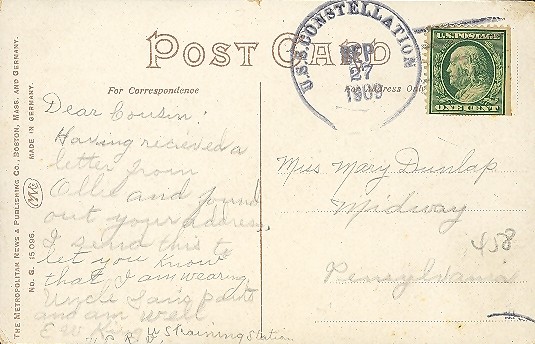 POST CARD
U.S.S. CONSTELLATION
SEP
27
1909
U.S. POSTAGE
ONE CENT
For Correspondence
For Address Only
Dear Cousin:
Having recieved a
letter from
Ollie and found
out your address
I send this to
let you know
that I am wearing
Uncle Sams pants
and am well
E W King
U S Training Station
Miss Mary Dunlap
Midway
Pensylvania
458
THE METROPOLITAN NEWS & PUBLISHING CO., BOSTON, MASS. AND GERMANY.
No. G. 15096.
MADE IN GERMANY.